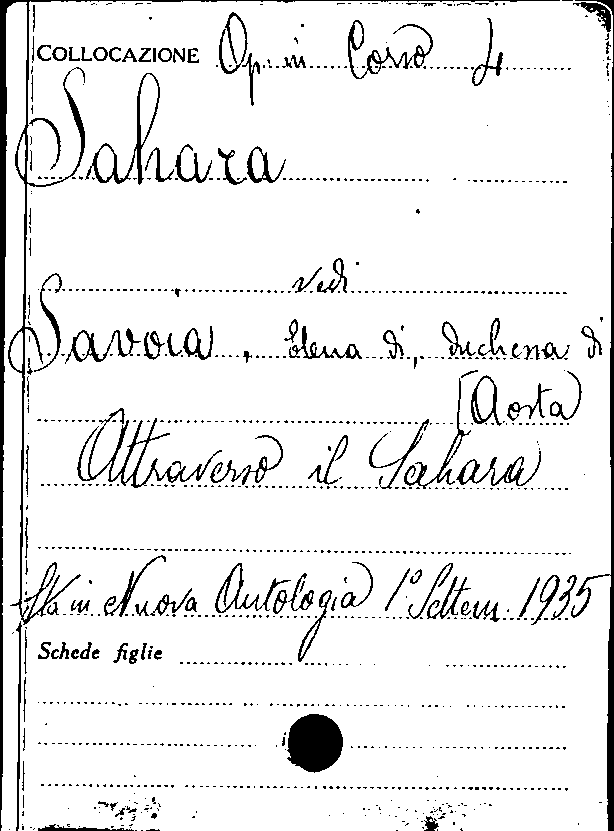 COLLOCAZIONE Op. in Corso 4
Sahara
vedi
Savoia, Elena di, duchessa di
[Aosta)
Attraverso il Sahara
Sta in Nuova Antologia 1° Settem. 1935
Schede figlie